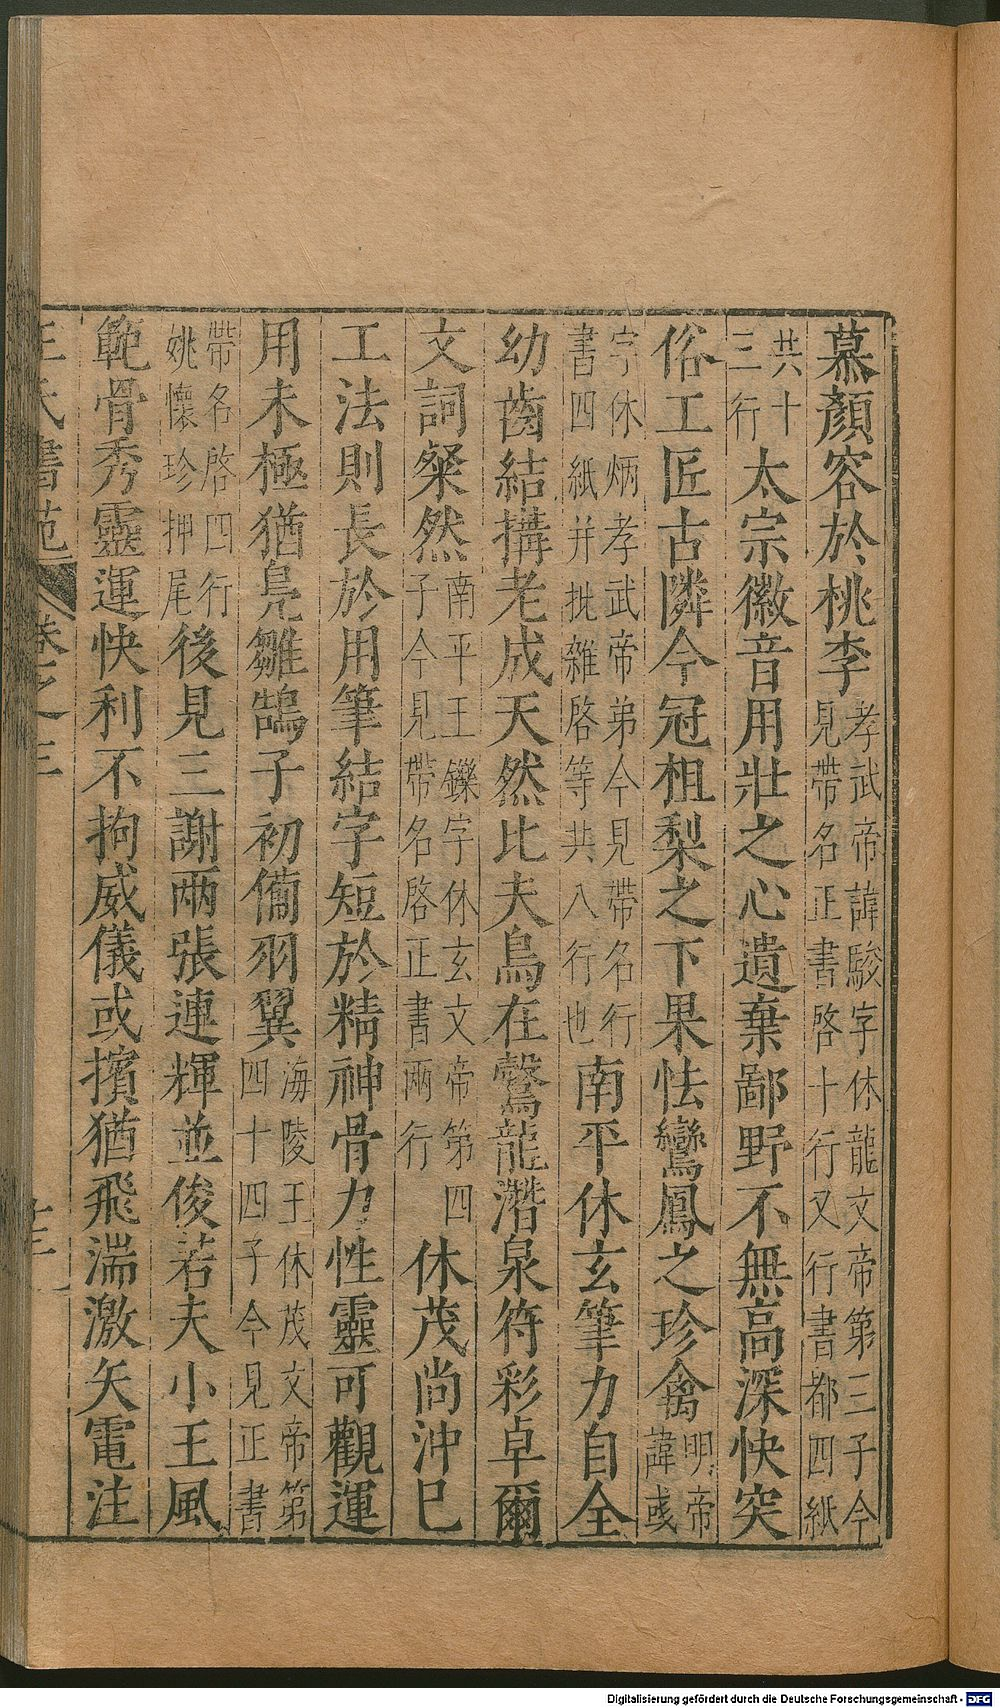 慕顏容於桃李孝武帝諱駿字休龍文帝第三子今見帶名正書啓十行又行書都四紙
共十三行太宗徽音用壯之心遺棄鄙野不無高深快突
俗工匠古隣今冠柤梨之下果怯鸞鳳之珍禽明帝諱彧
字休炳孝武帝弟今見帶名行書四紙并批雜啓等共八行也南平休玄筆力自全
幼齒結搆老成天然比夫鳥在鷙龍潛泉符彩卓爾
文詞粲然南平王鑠字休玄文帝第四子今見帶名啓正書兩行休茂尚沖已
工法則長於用筆結字短於精神骨力性靈可觀運
用未極猶鳧雛鵠子初備羽翼海陵王休茂文帝第四十四子今見正書
帶名啓四行姚懷珍押尾後見三謝兩張連輝並俊若夫小王風
範骨秀靈運快利不拘威儀或擯猶飛湍激矢電注
王氏書苑 卷之三 廿三
Digitalisierung gefördert durch die Deutsche Forschungsgemeinschaft - DFG